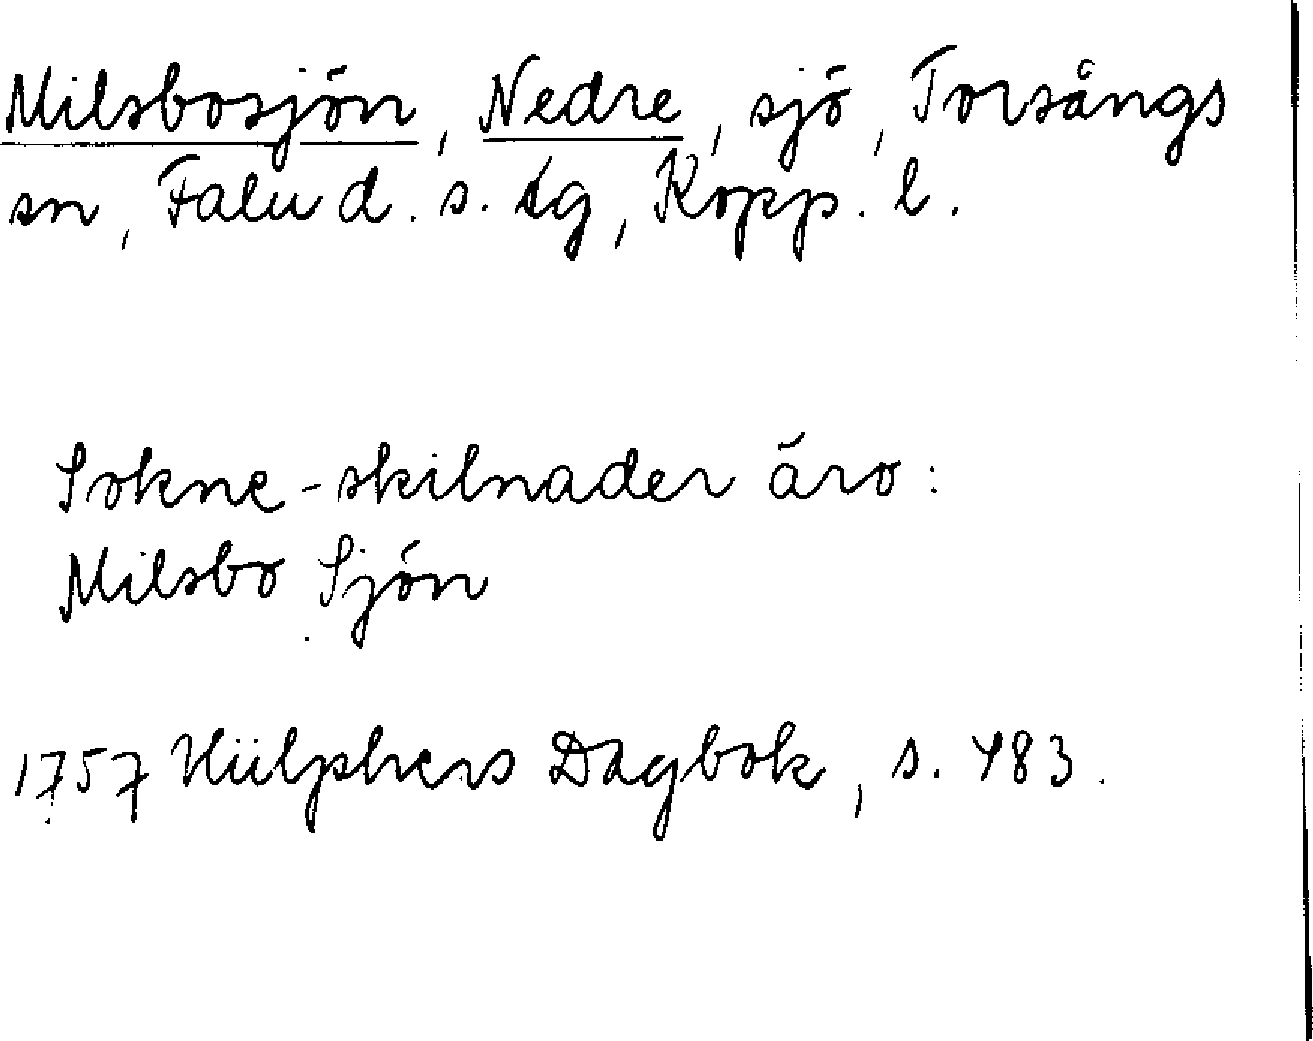 Milsbosjön, Nedre, sjö, Torsångs
sn, Falu d. s. tg, Kopp. l.
Sokne-skilnader äro:
Milsbo Sjön
1757 Hülphers Dagbok, s. 483.